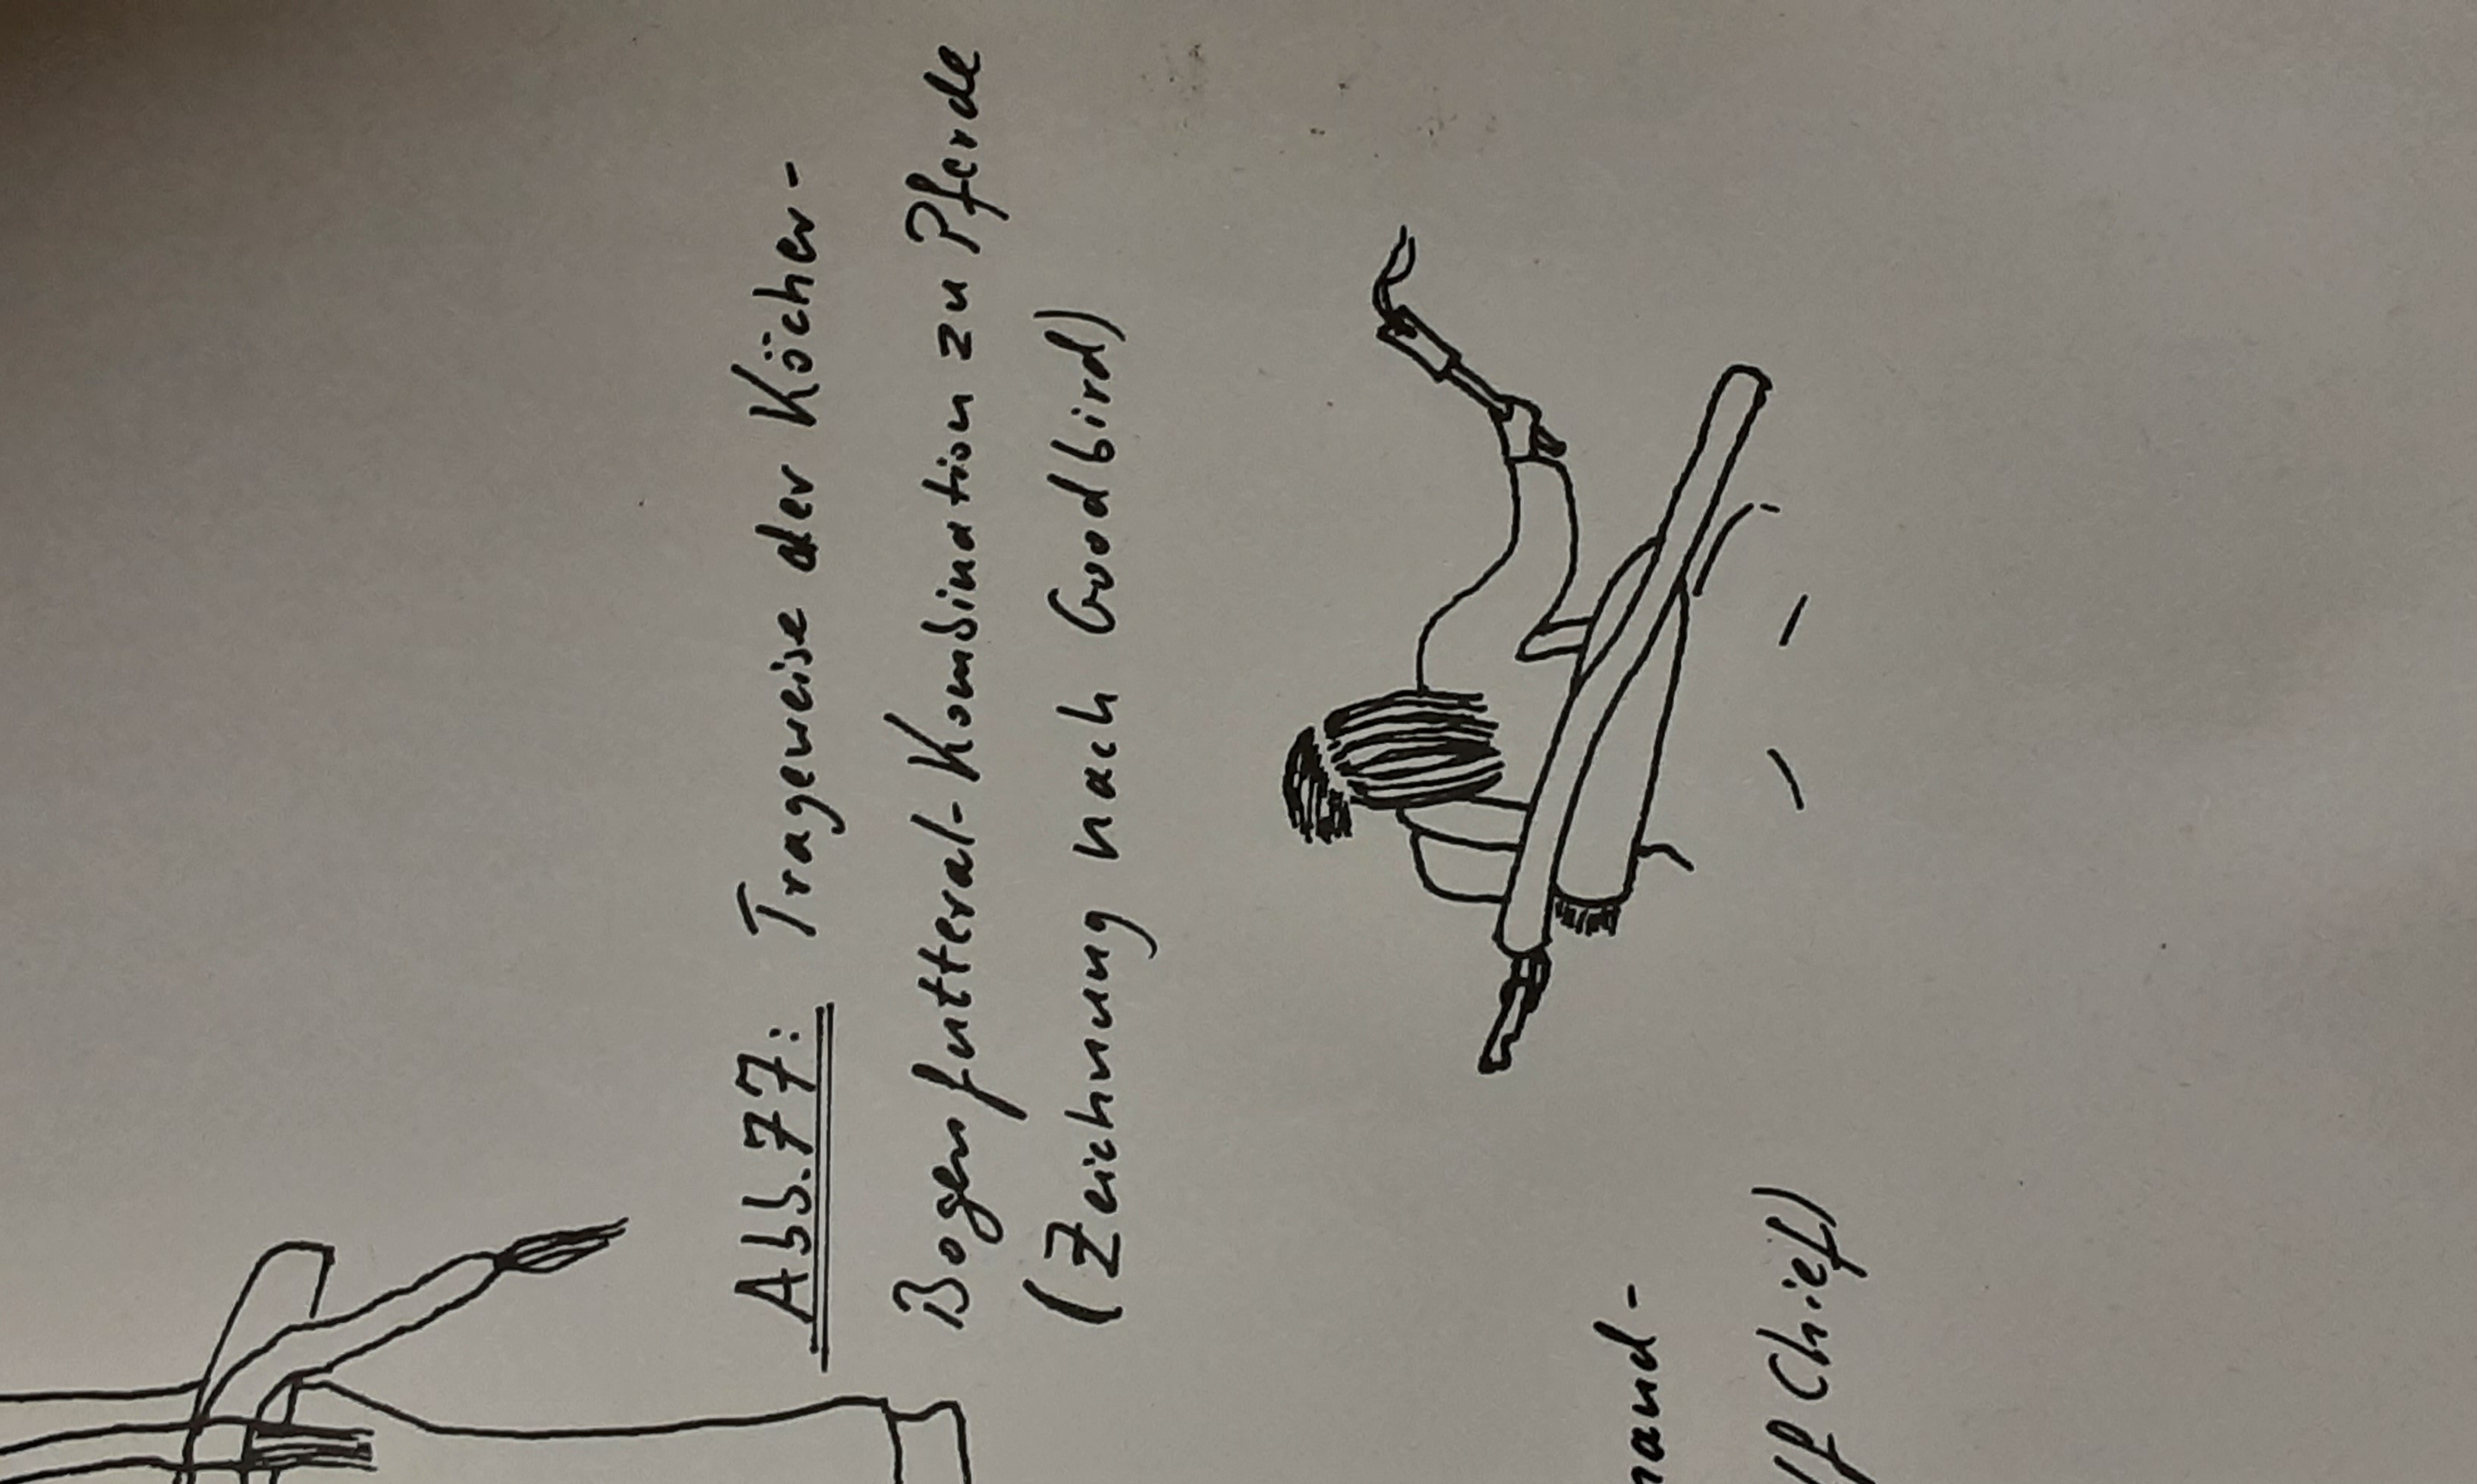 Abb. 77: Trageweise der Köcher-
Bogenfutteral-Kombination zu Pferde
(Zeichnung nach Goodbird)
Chief)